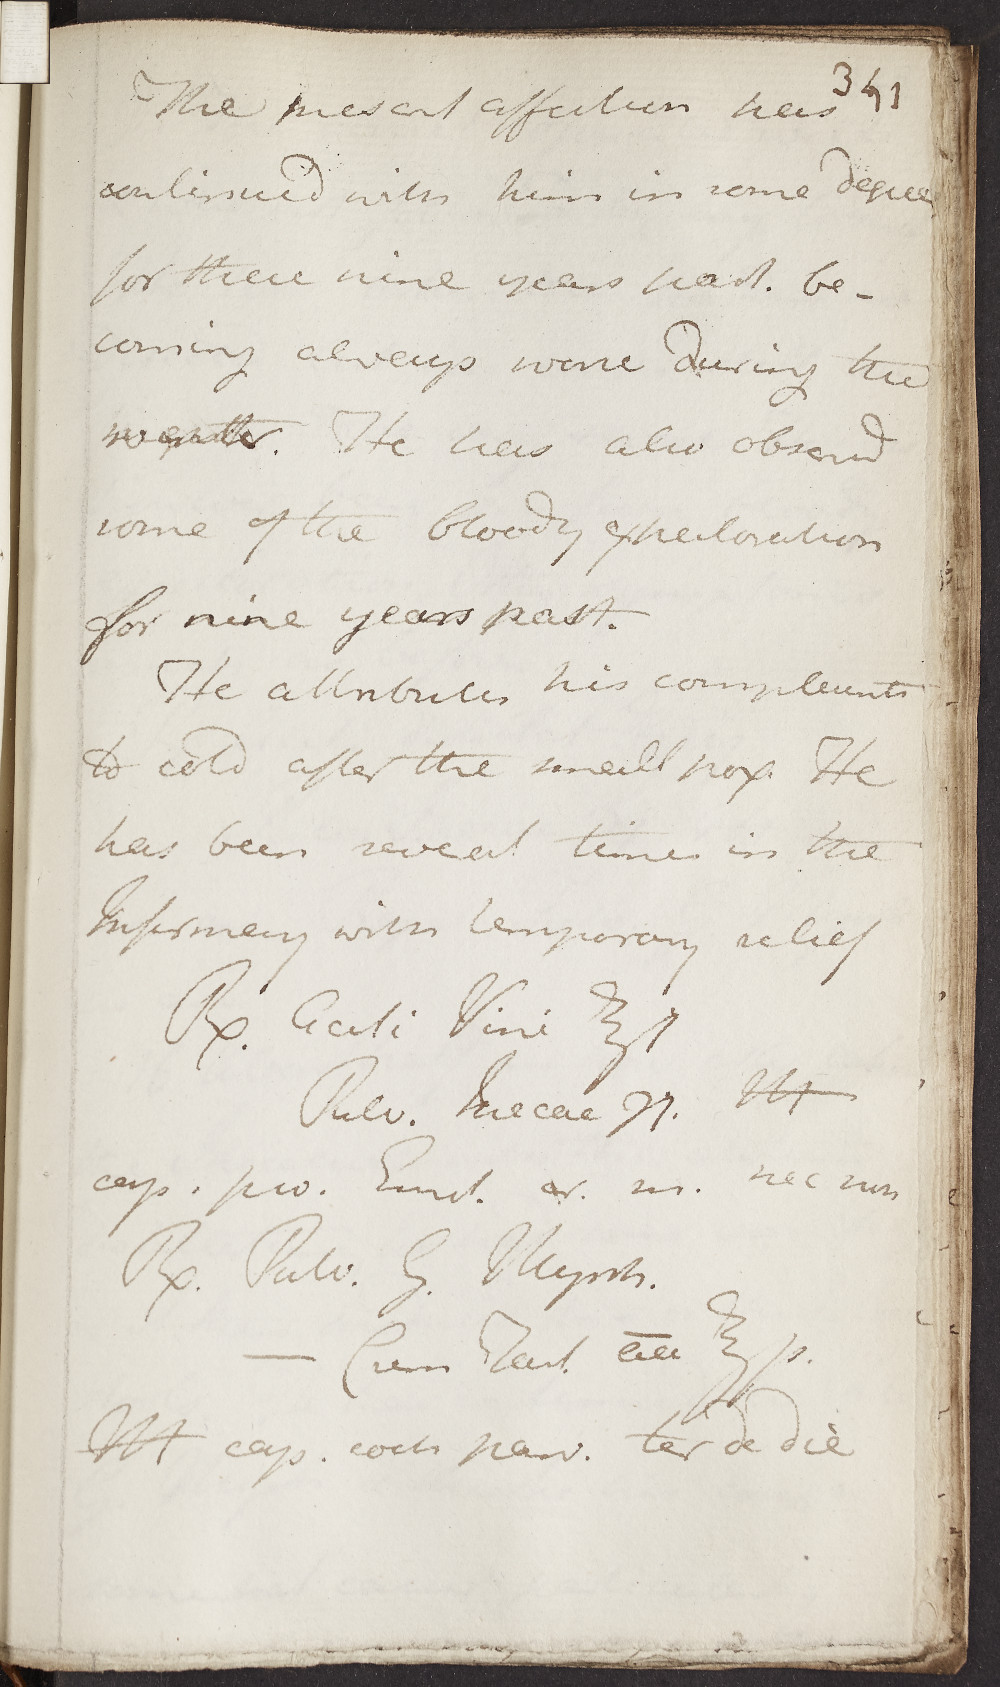 341
The present affection has
continued with him in some degree
for these nine years past. be-
coming always worse during the
He has also observed
some of the bloody expectoration
for nine years past.
He attributes his complaints
to cold after the small pox. He
has been several times in the
Infirmary with temporary relief
Rx. Aceti Vini ℥j
Pulv. Ipecac ℈j. M
cap. pro. Emet. nec non
Rx. Pulv. G. Myrrh.
— Crem Tart. āā ℥ß.
M cap. coch parv. ter de die